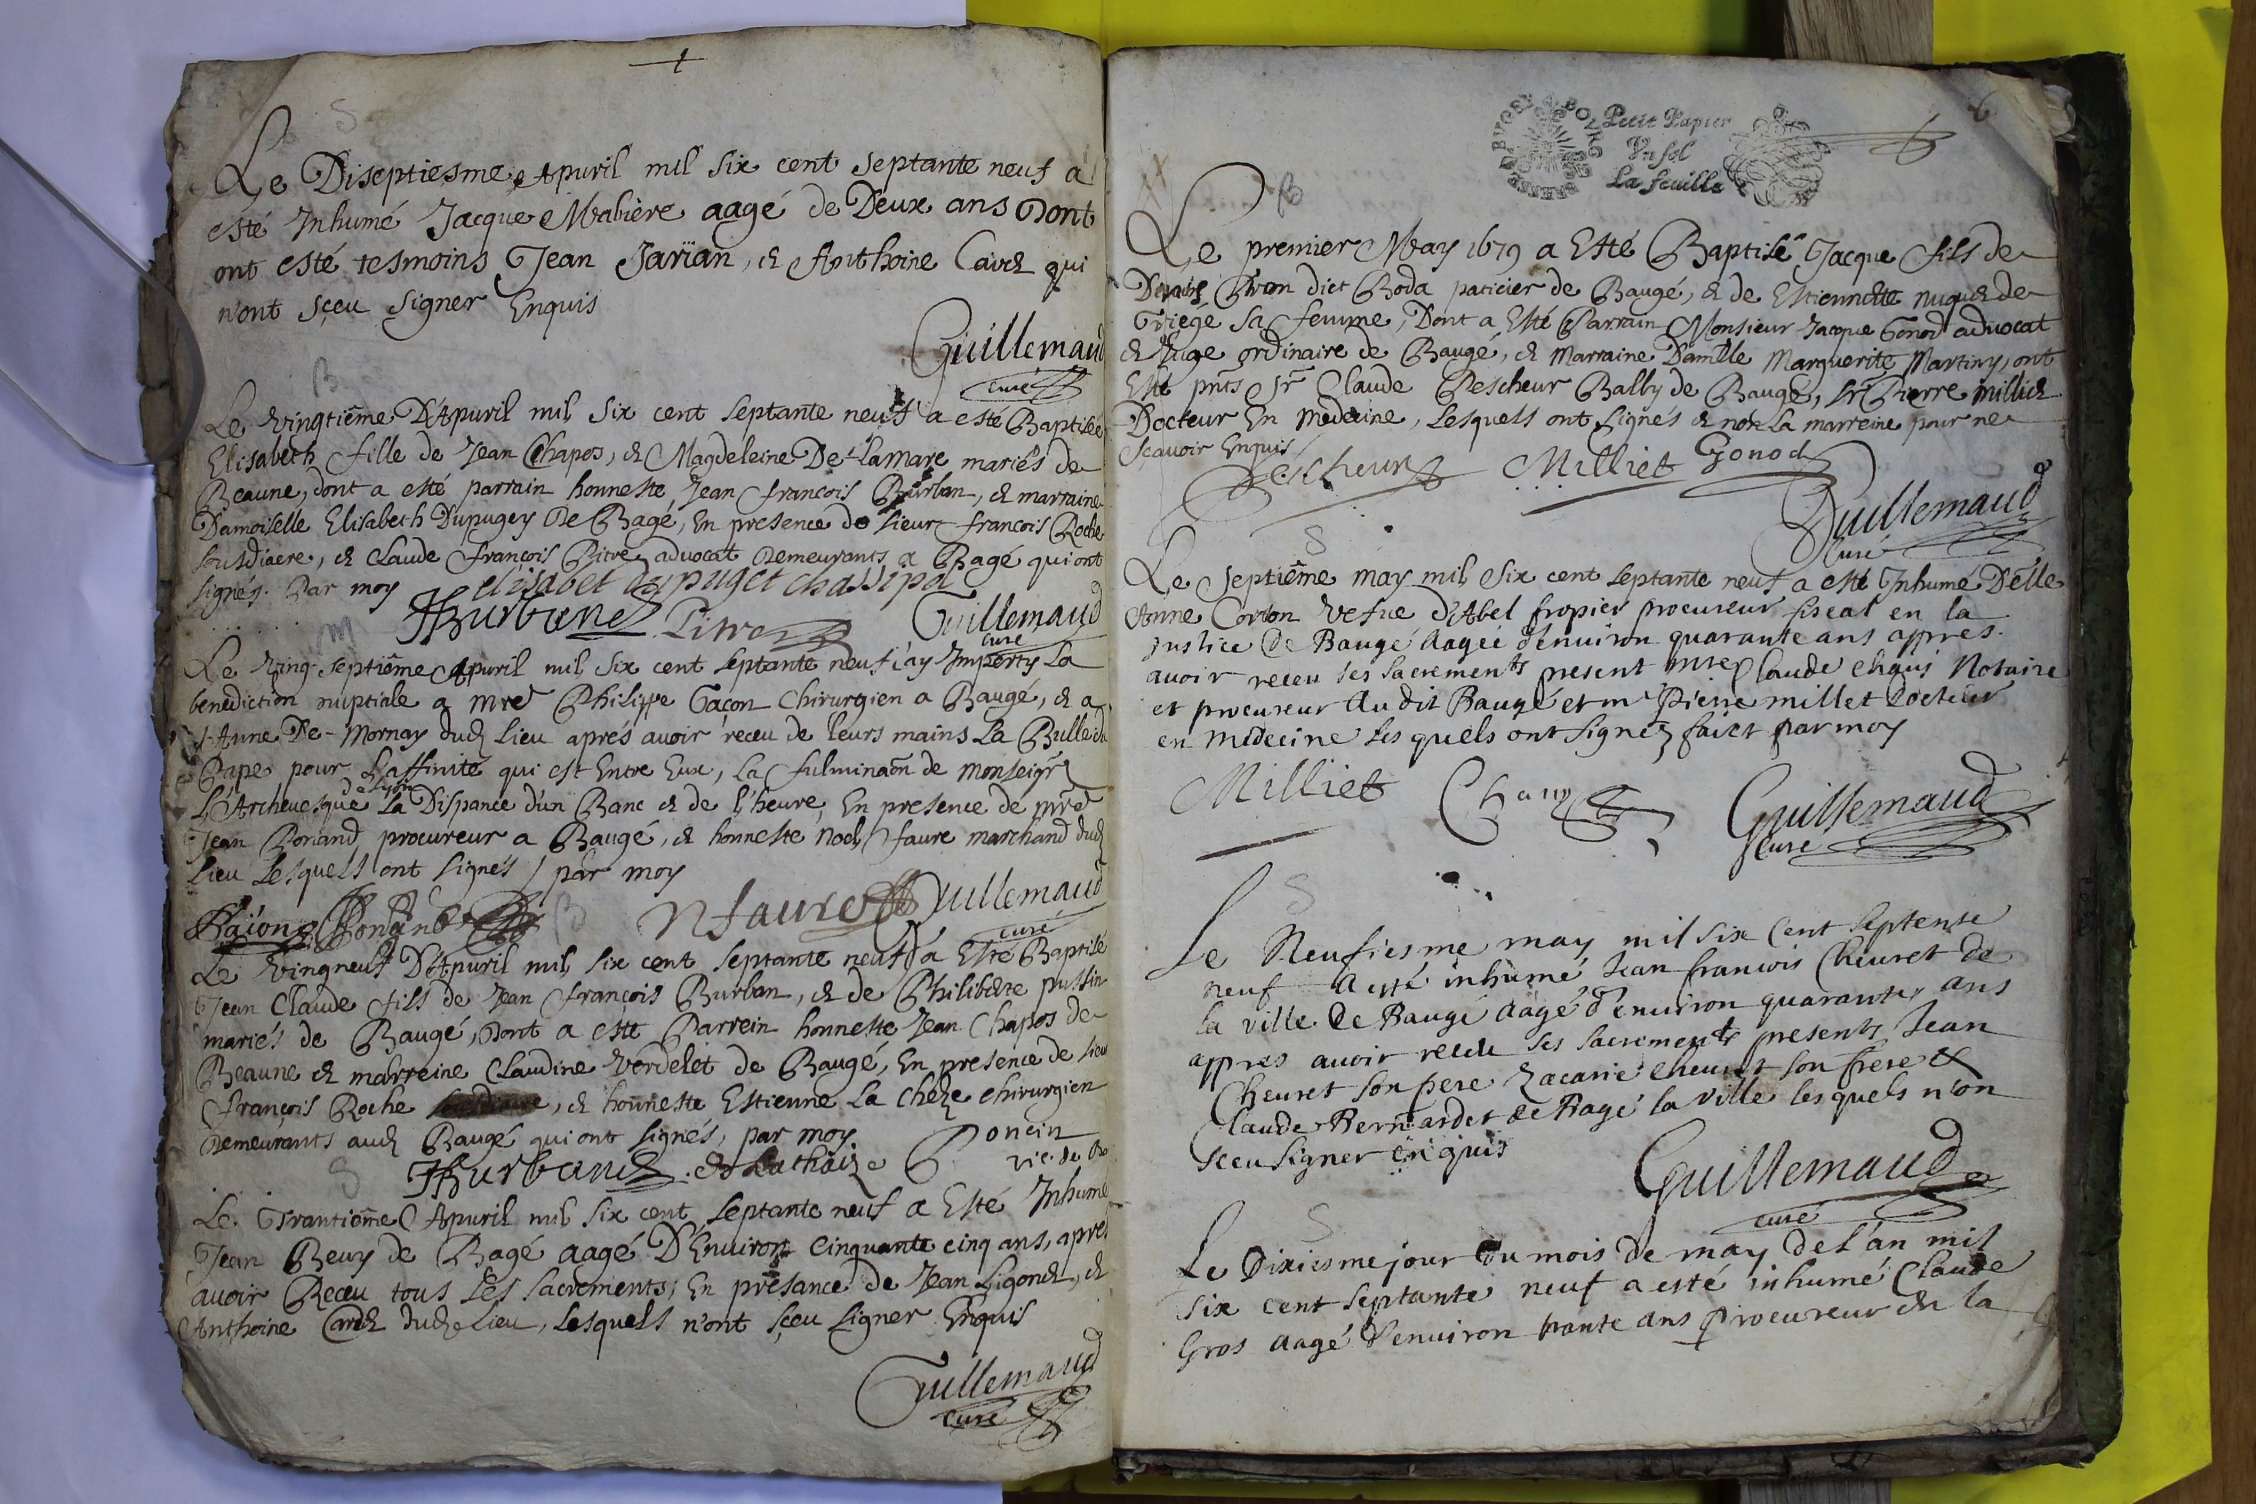 S
Le Diseptiesme Apuril mil six cent septante neuf a
esté Inhumé Jacque Mabière aagé de Deux ans Dont
ont esté tesmoins Jean Jarian, et Anthoine Cavet qui
n'ont sçeu signer Enquis
Guillemaud
curé
B
Le vingtiême D'Apuril mil six cent septante neuf a esté Baptisée
Elisabeth fille de Jean Chapos, et Magdeleine De-Lamare mariés de
Beaune, dont a esté parrain honneste Jean françois Burban, et marraine
Damoiselle Elisabeth Dupugey De Bagé, En presence de sieurs françois Roche
sousdiacre, et Claude François Pitre advocat Demeurants a Bagé qui ont
signés. Par moy
elisabet dupuget chassipol
JFburbane Pitre Guillemaud
curé
M
Le Ving-septiême Apuril mil six cent septante neuf j'ay Imparty La
benediction nuptiale a mre Philippe Façon Chirurgien a Baugé, et a
Anne De-Mornay dud Lieu aprés avoir receu de leurs mains La Bulle du
Pape pour L'affinité qui est Entre Eux, La fulminaôn de Monseigr
L'Archevesque de Lyon La Dispance d'un Banc et de l'heure, En presence de mre
Jean Bonand procureur a Baugé, et honneste Noel faure marchand dud
Lieu Lesquels ont signés / par moy
Nfaure Guillemaud
curé
B
Le Vingneuf D'Apuril mil six cent septante neuf a Esté Baptisé
Jean Claude fils de Jean françois Burban, et de Philiberte pussin
mariés de Baugé, Dont a esté Parrein honneste Jean Chapos de
Beaune et marreine Claudine Verdelet de Baugé, En presence de sieur
françois Roche, et honneste Estienne La Cheze chirurgien
Demeurants aud Baugé qui ont signés, par moy
JFburbane E Lachaize P Poncin
vic. de
S
Le Trantiême Apuril mil six cent septante neuf a Esté Inhumé
Jean Beuy de Bagé aagé D'Environ Cinquante cinq ans, apres
avoir Receu tous Les sacrements, En présance de Jean Ligonet, et
Anthoine Cavet dud Lieu, Lesquels n'ont sçeu signer Enquis
Guillemaud
curé
BRESSE BVGEY BOVRG
Petit Papier
Vn sol
La feuille
6
B
Le premier May 1679 a Esté Baptisé Jacque fils de
Denis Bron dict Boda paticier de Baugé, et de Estiennette nuguet de
Griege sa femme, Dont a Esté Parrain Monsieur Jacque Gonod advocat
et Juge ordinaire de Baugé, et Marraine Damlle Marguerite Martiny, ont
Esté pnts Sr Claude Pescheur Bally de Baugé, Sr Pierre milliet
Docteur En Medecine, Lesquels ont signés et non La marreine pour ne
sçavoir Enquis
Pescheur Milliet Gonod
Guillemaud
Curé
S
Le septiême may mil six cent septante neuf a esté Inhumé Delle
Anne Corton vefue d'Abel fropier procureur fiscal en la
justice de Baugé aagée d'environ quarante ans appres
avoir receu ses sacrements present mre Claude Chauy Notaire
et procureur audit Baugé et mr Pierre millet docteur
en Medecine lesquels ont signez faict par moy
Milliet Chauy Guillemaud
Curé
S
Le Neufiesme may mil six Cent septente
neuf a esté inhumé Jean francois Cheuret de
la ville de Baugé aagé d'environ quarante ans
appres avoir receu ses sacrements presents Jean
Cheuret son pere Zacarie Cheuret son frere et
Claude Bernardet de Bagé la ville lesquels n'on
sceu signer enquis
Guillemaud
curé
S
Le Dixiesme jour du mois de may de l'an mil
six cent septante neuf a esté inhumé Claude
Gros aagé d'environ trante ans procureur en la